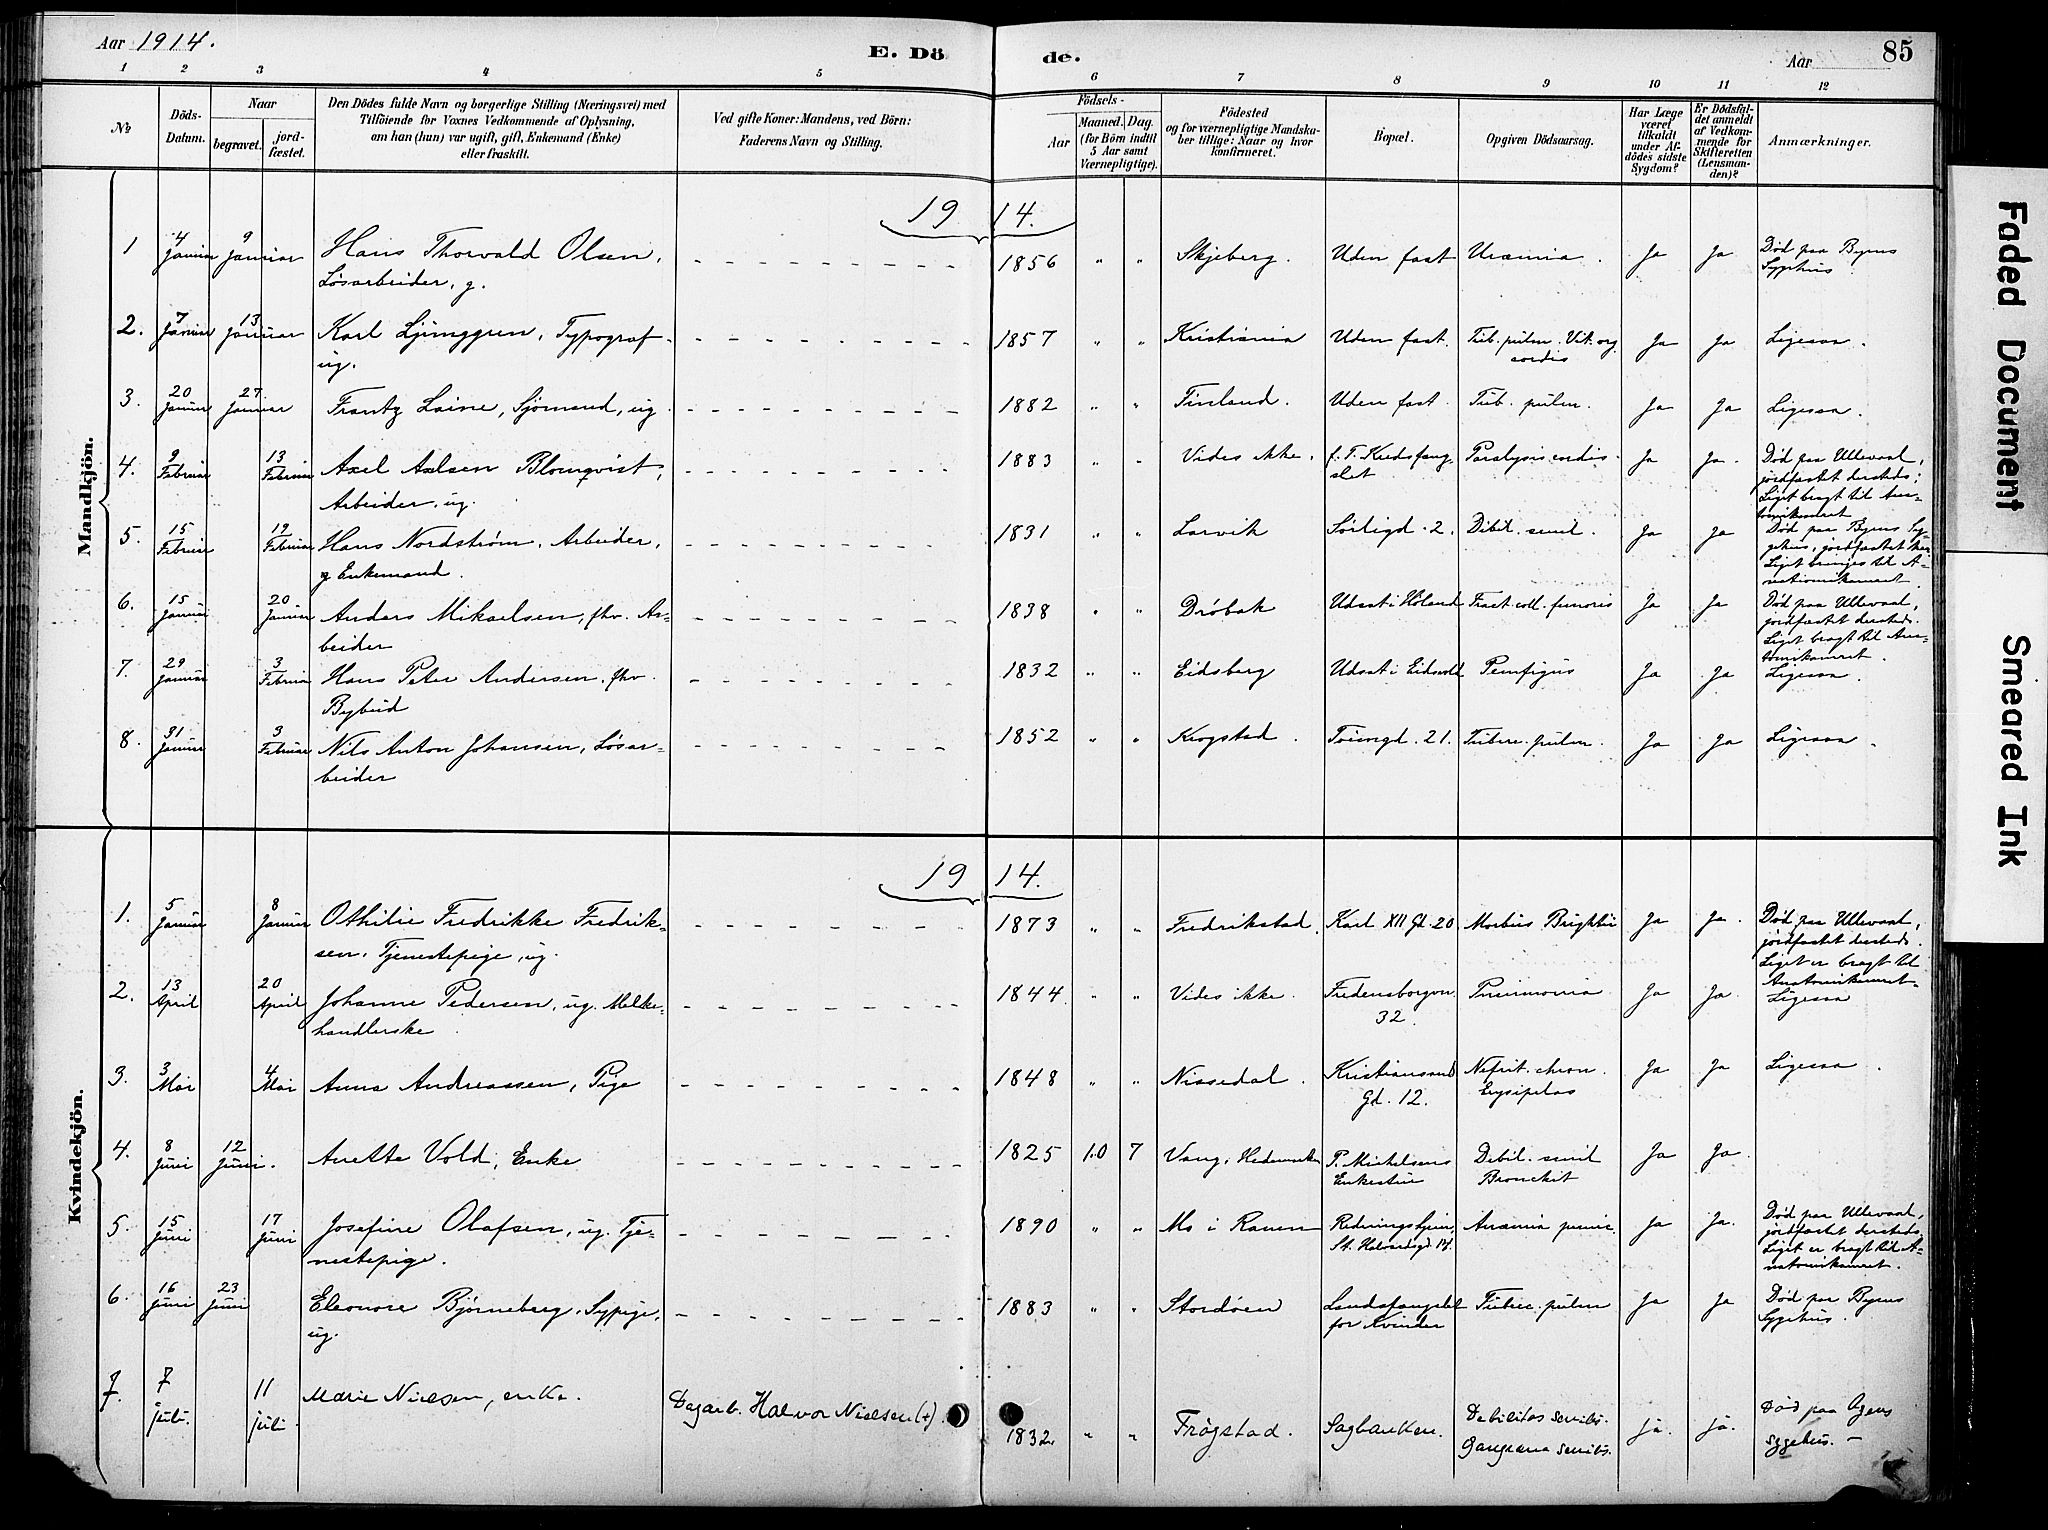 Aar 1914.
E. Dö de.
Aar 85
1 2 3 4 5 6 7 8 9 10 11 12
No
Döds-Datum.
Naar
begravet.
jord-fæstet.
Den Dödes fulde Navn og borgerlige Stilling (Næringsvei) med
Tilföiende for Voxnes Vedkommende af Oplysning,
om han (hun) var ugift, gift, Enkemand (Enke)
eller fraskilt.
Ved gifte Koner: Mandens, ved Börn:
Faderens Navn og Stilling.
Födsels-
Aar
Maaned. Dag.
(for Börn indtil
5 Aar samt
Værnepligtige).
Födested
og for værnepligtige Mandska-
ber tillige: Naar og hvor
konfirmeret.
Bopæl.
Opgiven Dödsaarsag.
Har Læge
været
tilkaldt
under Af-
dödes sidste
Sygdom?
Er Dödsfal-
det anmeldt
af Vedkom-
mende for
Skifteretten
(Lensman-
den)?
Anmærkninger.
Mandkjön.
1914.
1 4 Januar 9 Januar Hans Thorvald Olsen, 1856 " " Skjeberg. Uden fast Uræmia. Ja Ja Død paa Byens
Løsarbeider, g. Sygehus
2. 7 Januar 13 Januar Karl Ljunggren, Typograf 1857 " " Kristiania Uden fast. Tub. pulm. Vit. org. Ja Ja Ligesaa.
ug. cordis
3. 20 Januar 27 Januar Frantz Laine, Sjömand, ug. 1882 " " Finland. Uden fast. Tub. pulm. Ja Ja Ligesaa.
4. 9 Februar 13 Februar Axel Axlsen Blomqvist, 1883 " " Vides ikke. f. T. Kredsfæng- Paralysis cordis. Ja Ja. Død paa Ullevaal,
Arbeider, ug. slet jordfæstet dersteds;
Liget bragt til Ana-
tomikamret
5. 15 Februar 19 Februar Hans Nordstrøm, Arbeider, 1831 " " Larvik Sörligd. 2. Debil. senil. Ja Ja Død paa Byens Sy-
g Enkemand. gehus, jordfæstet her.
Liget bringes til A-
natomikamret.
6. 15 Januar 20 Januar Anders Mikaelsen, fhv. Ar- 1838 " " Drøbak Udsat i Höland Fract. coll. femoris Ja Ja Død paa Ullevaal,
beider jordfæstet dersteds.
Liget bragt til Ana-
tomikamret.
7. 29 Januar 3 Februar Hans Peter Andersen, fhv. 1832 " " Eidsberg Udsat i Eidsvold Pemfigus Ja Ja Ligesaa.
Bybud
8. 31 Januar 3 Februar Nils Anton Johansen, Løsar- 1852 " " Krogstad. Toiengd. 21. Tuberc. pulm. Ja Ja Ligesaa.
beider
Kvindekjön.
1914.
1. 5 Januar 8 Januar Othilie Fredrikke Fredrik- 1873 " " Fredrikstad. Karl XII Gd. 20 Morbus Brightii Ja Ja. Død paa Ullevaal,
sen, Tjenestepige, ug. jordfæstet dersteds.
Liget er bragt til
Anatomikamret.
2. 13 April 20 April Johanne Pedersen, ug. Melke- 1844 " " Vides ikke. Fredensborgvn. Pneumonia Ja Ja. Ligesaa
handlerske 32.
3. 3 Mai 4 Mai Anna Andreassen, Pige 1848 " " Nissedal. Kristiansund Nefrit. chron. Ja Ja Ligesaa.
Gd. 12. Erysipelas
4. 8 Juni 12 Juni. Anette Vold, Enke 1825 10 7 Vang, Hedemarken P. Michelsens Debil. senil Ja Ja.
Enkestue Bronchit
5. 15 Juni 17 Juni Josefine Olafsen, ug. Tje- 1890 " " Mo i Ranen Redningshjem, Anæmia pernic. Ja Ja. Død paa Ullevaal,
nestepige. St. Halvardsgd. jordfæstet dersteds.
Liget er bragt til A-
natomikamret.
6. 16 Juni 23 Juni Eleonora Bjørneberg, Sypige, 1883 " " Stordøen Landsfængslet Tuberc. pulm Ja Ja Død paa Byens
ug. for Kvinder Sygehus.
7. 7 juli. 11 juli. Marie Nielsen, enke. Dagarb. Halvor Nielsen (+). 1832 " " Frøgstad. Sagbanken. Debilitas senilis. ja. ja. Død paa
Gangræna senilis. sygehus. —
Faded Document
Smeared Ink